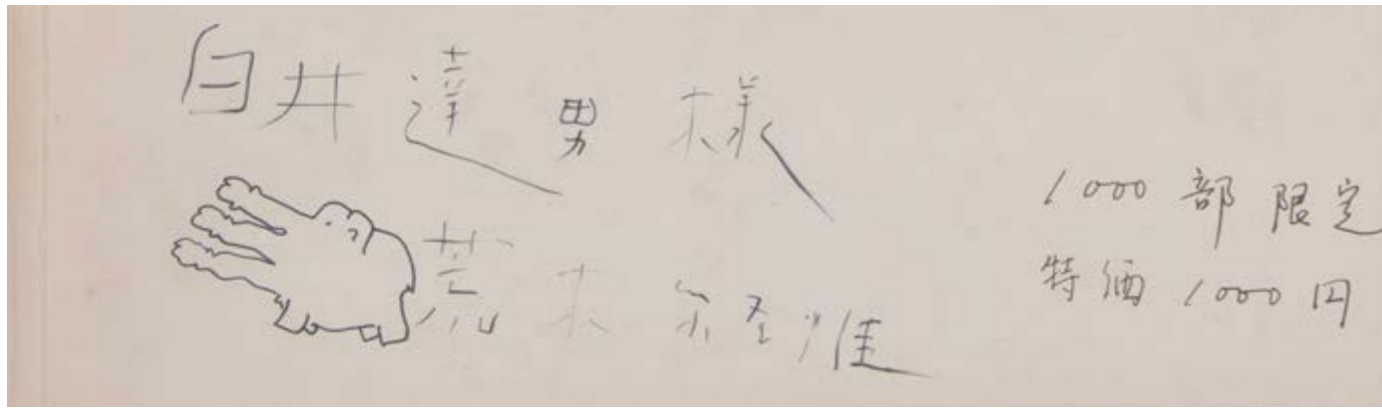 白井達男様
荒木経惟
1000部限定
特価1000円